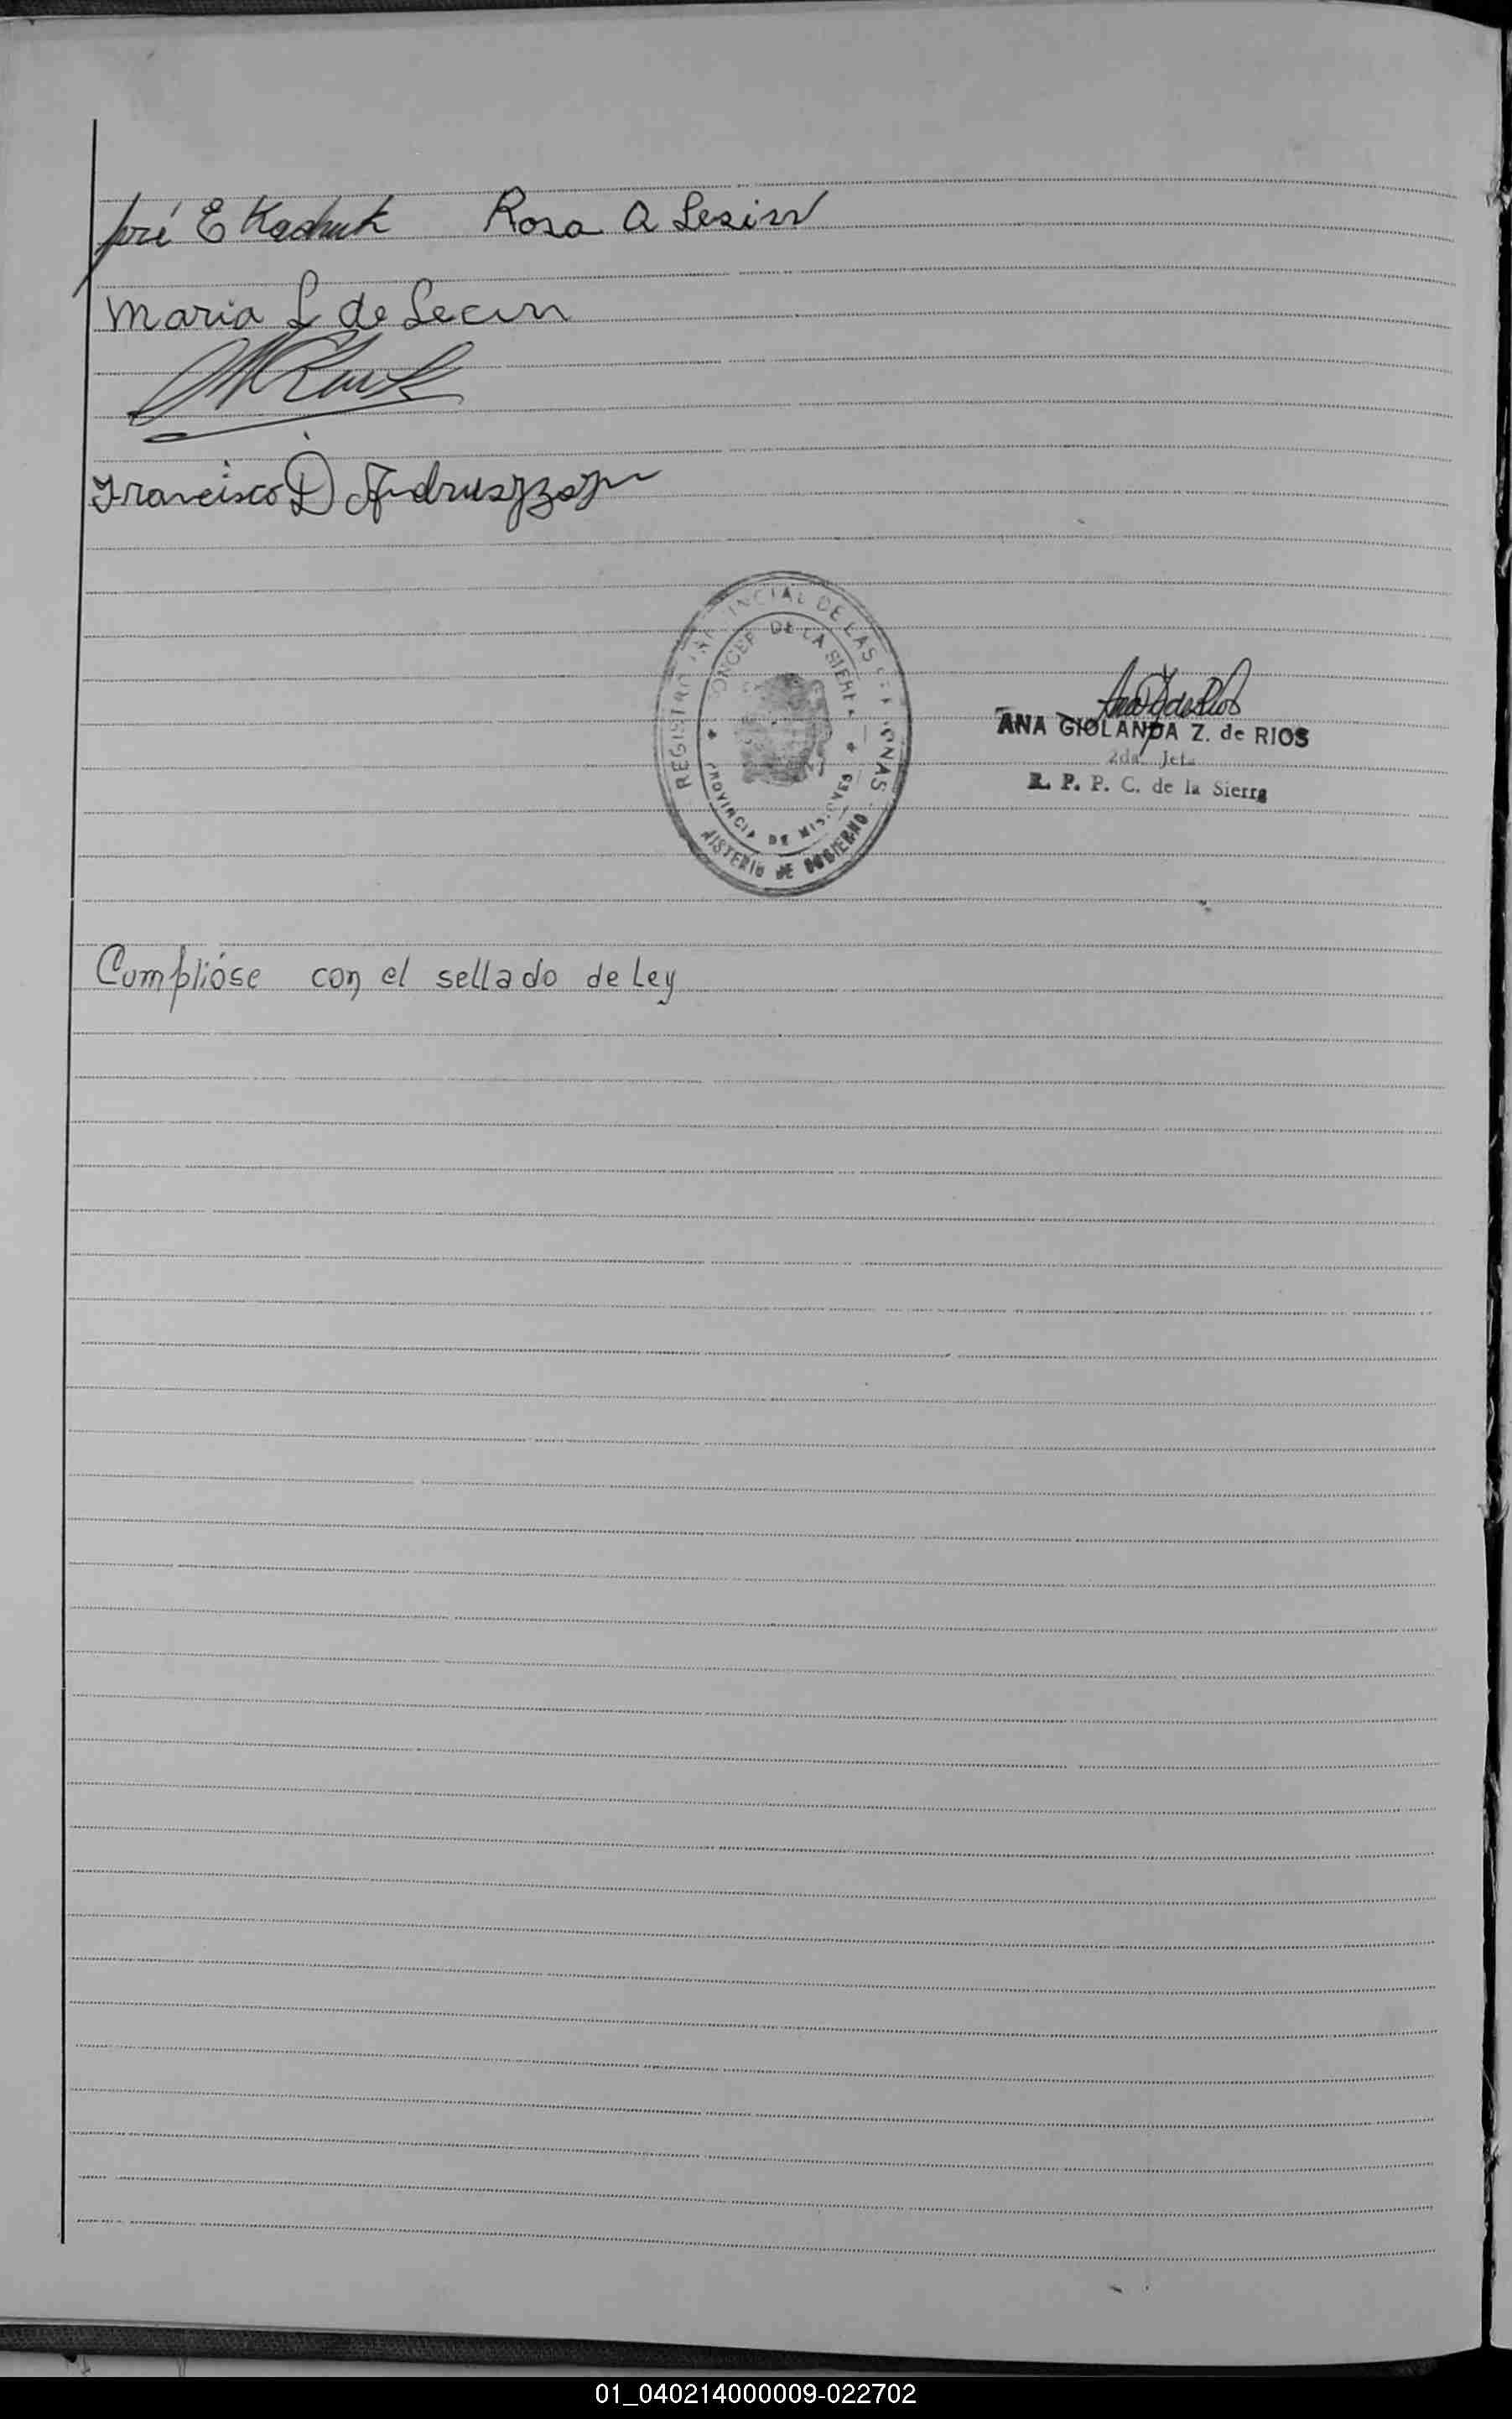 José E Kachuk Rosa A Lesiw
Maria L de Lecin
Francisco D Andruszyszyn
REGISTRO PROVINCIAL DE LAS PERSONAS
CONCEP. DE LA SIERRA
PROVINCIA DE MISIONES
MINISTERIO DE GOBIERNO
ANA GIOLANDA Z. de RIOS
2da Jefa
R. P. P. C. de la Sierra
Cumplióse con el sellado de Ley
01_040214000009-022702